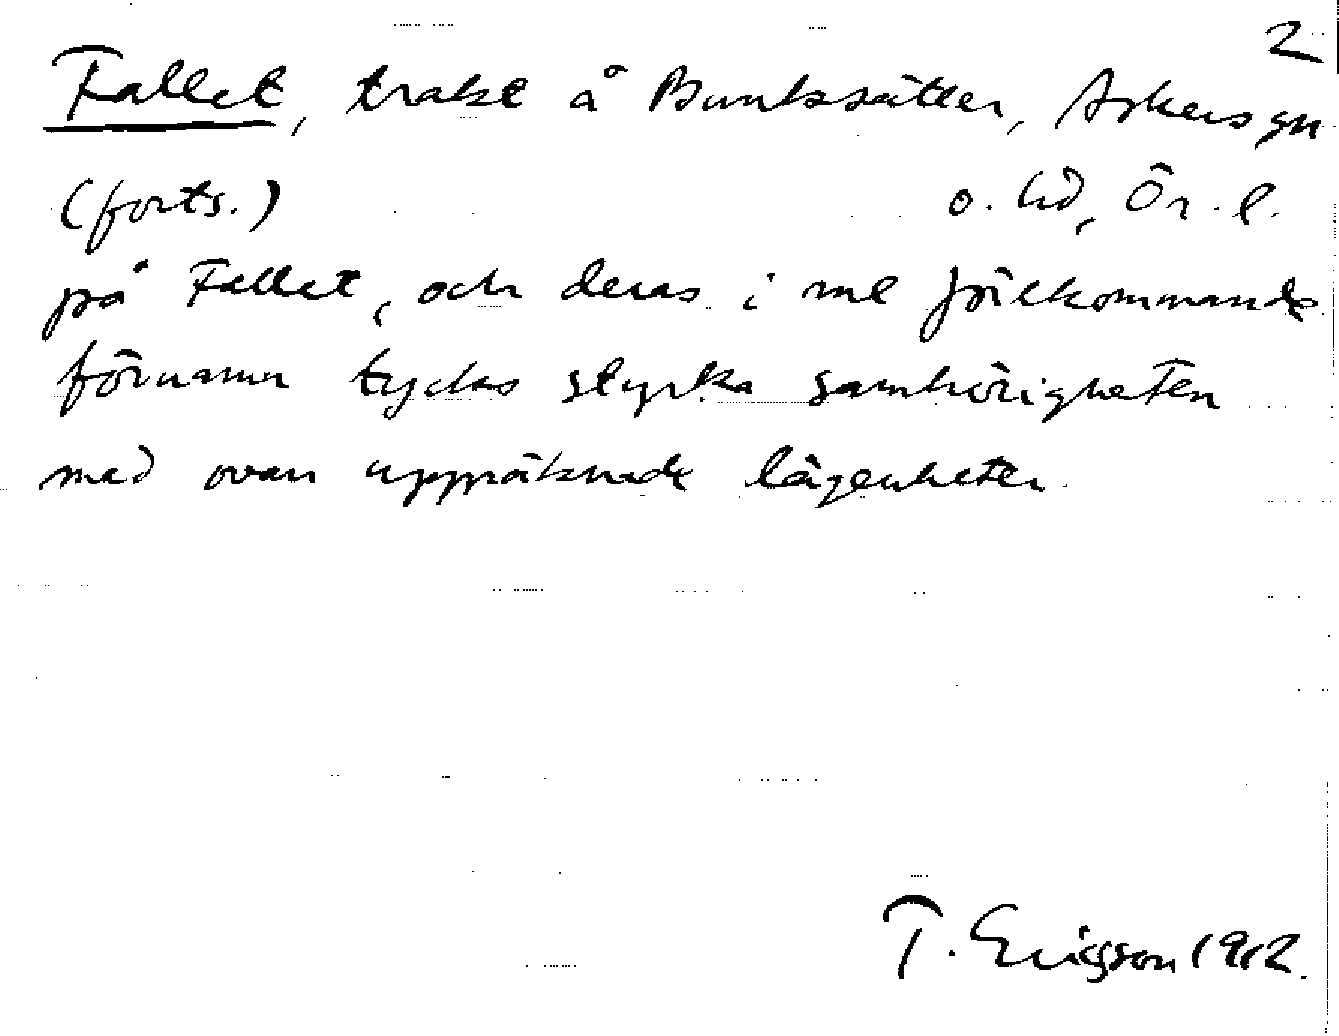 2
Fallet, trakt å Bunksätter, Askers sn
(forts.) o. hd, Ör. l.
på Fallet, och deras i ml förekommande
förnamn tycks styrka samhörigheten
med ovan uppräknade lägenheter.
T. Ericsson 1912.